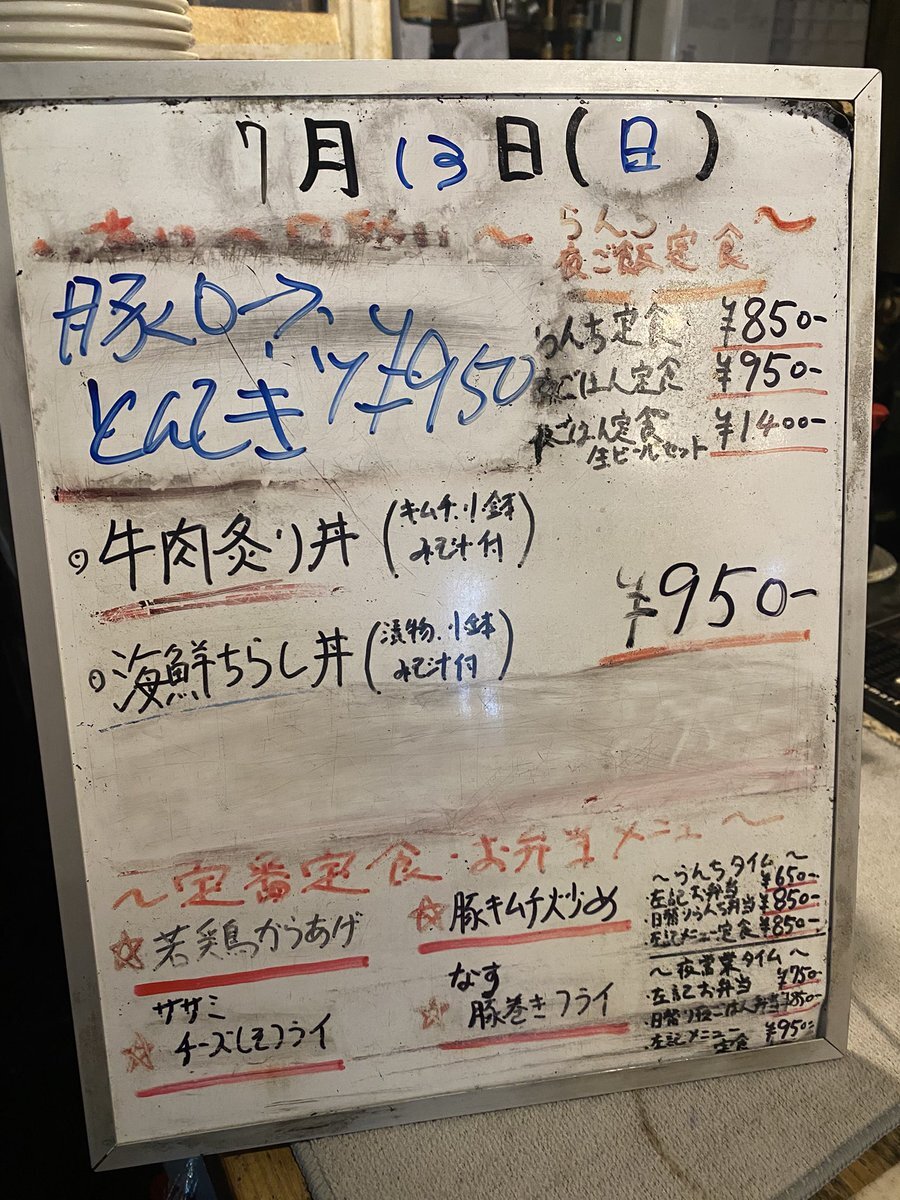 7月13日(日)
～らんち～
夜ご飯定食
豚ロース
とんてき ¥950
らんち定食 ¥850-
夜ごはん定食 ¥950-
夜ごはん定食
生ビールセット ¥1.400-
牛肉炙り丼(キムチ、小鉢
みそ汁付)
¥950-
海鮮ちらし丼(漬物、小鉢
みそ汁付)
～定番定食・お弁当メニュー～
☆若鶏からあげ
☆豚キムチ炒め
ササミ
☆チーズしそフライ
なす
☆豚巻きフライ
～らんちタイム～
・左記お弁当 ¥650-
・日替りらんち弁当 ¥850-
・左記メニュー定食 ¥850-
～夜営業タイム～
・左記お弁当 ¥750-
・日替り夜ごはん弁当 ¥850-
・左記メニュー
定食 ¥950-